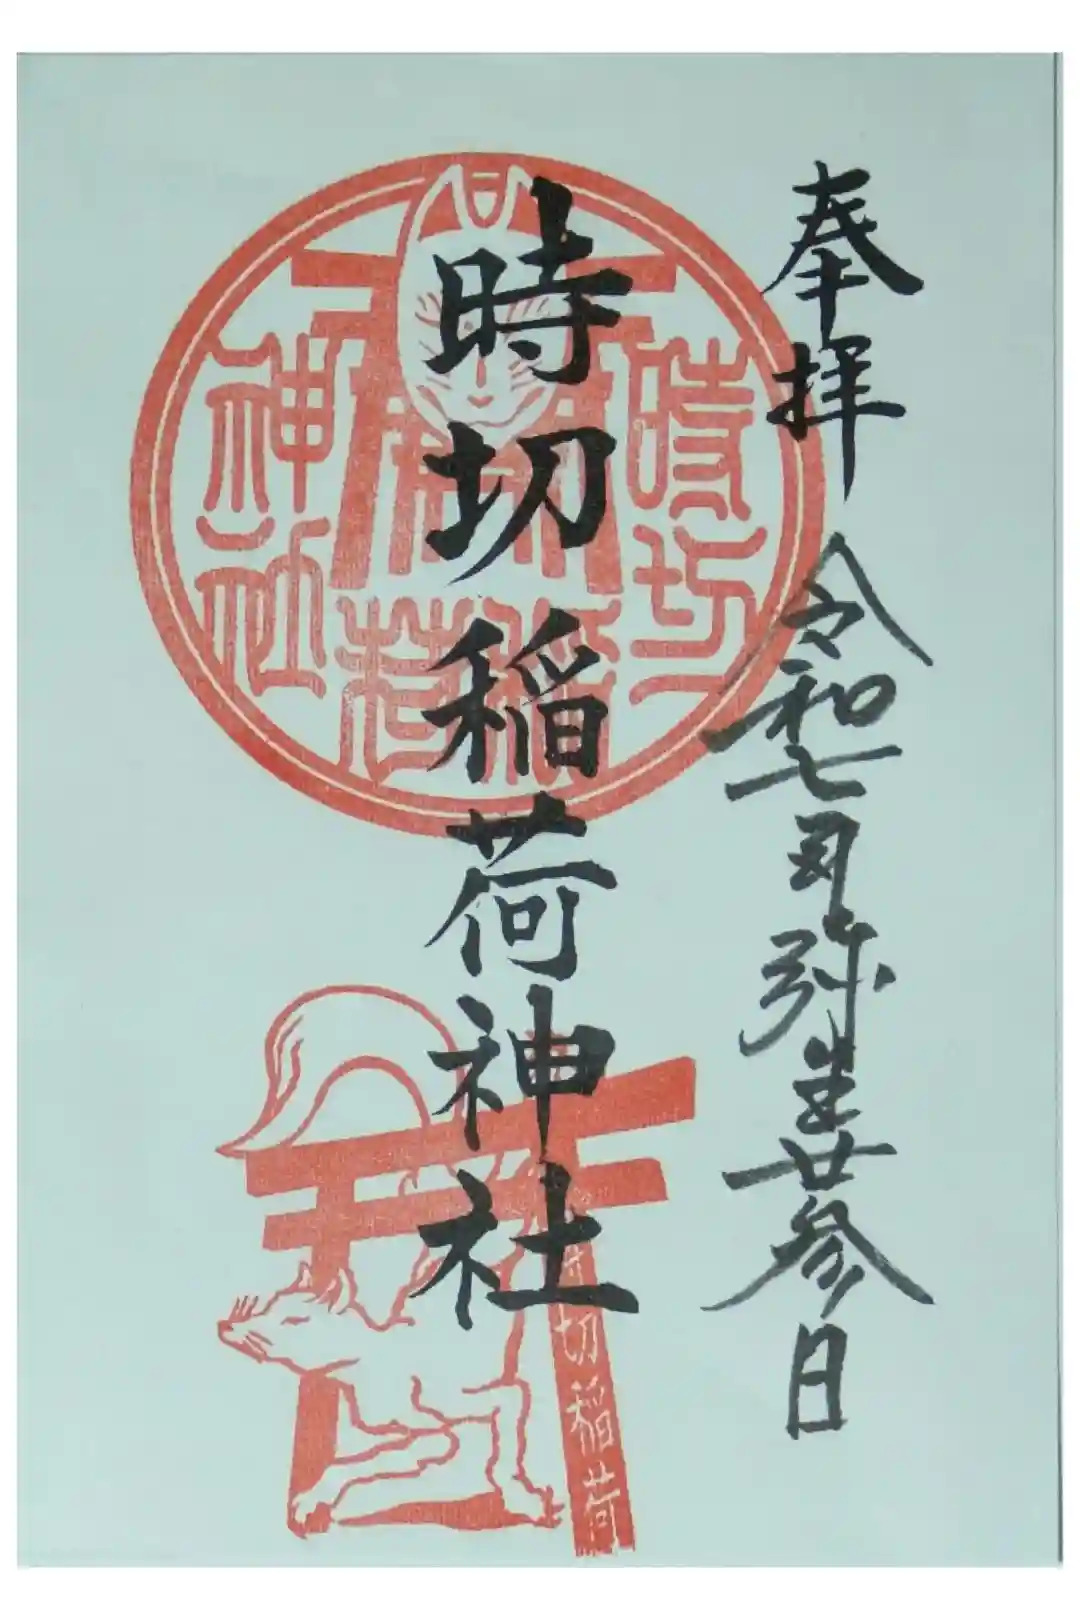 奉拝
令和七年弥生廿参日
時切稲荷神社
時切
稲荷
神社
切稲荷